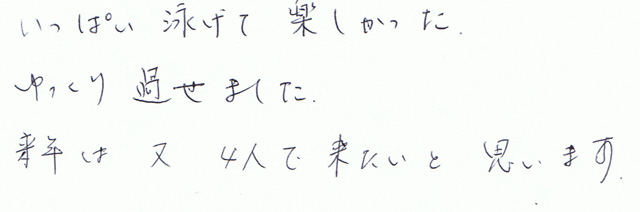 いっぱい 泳げて 楽しかった.
ゆっくり 過せました.
来年は 又 4人で 来たいと 思います.